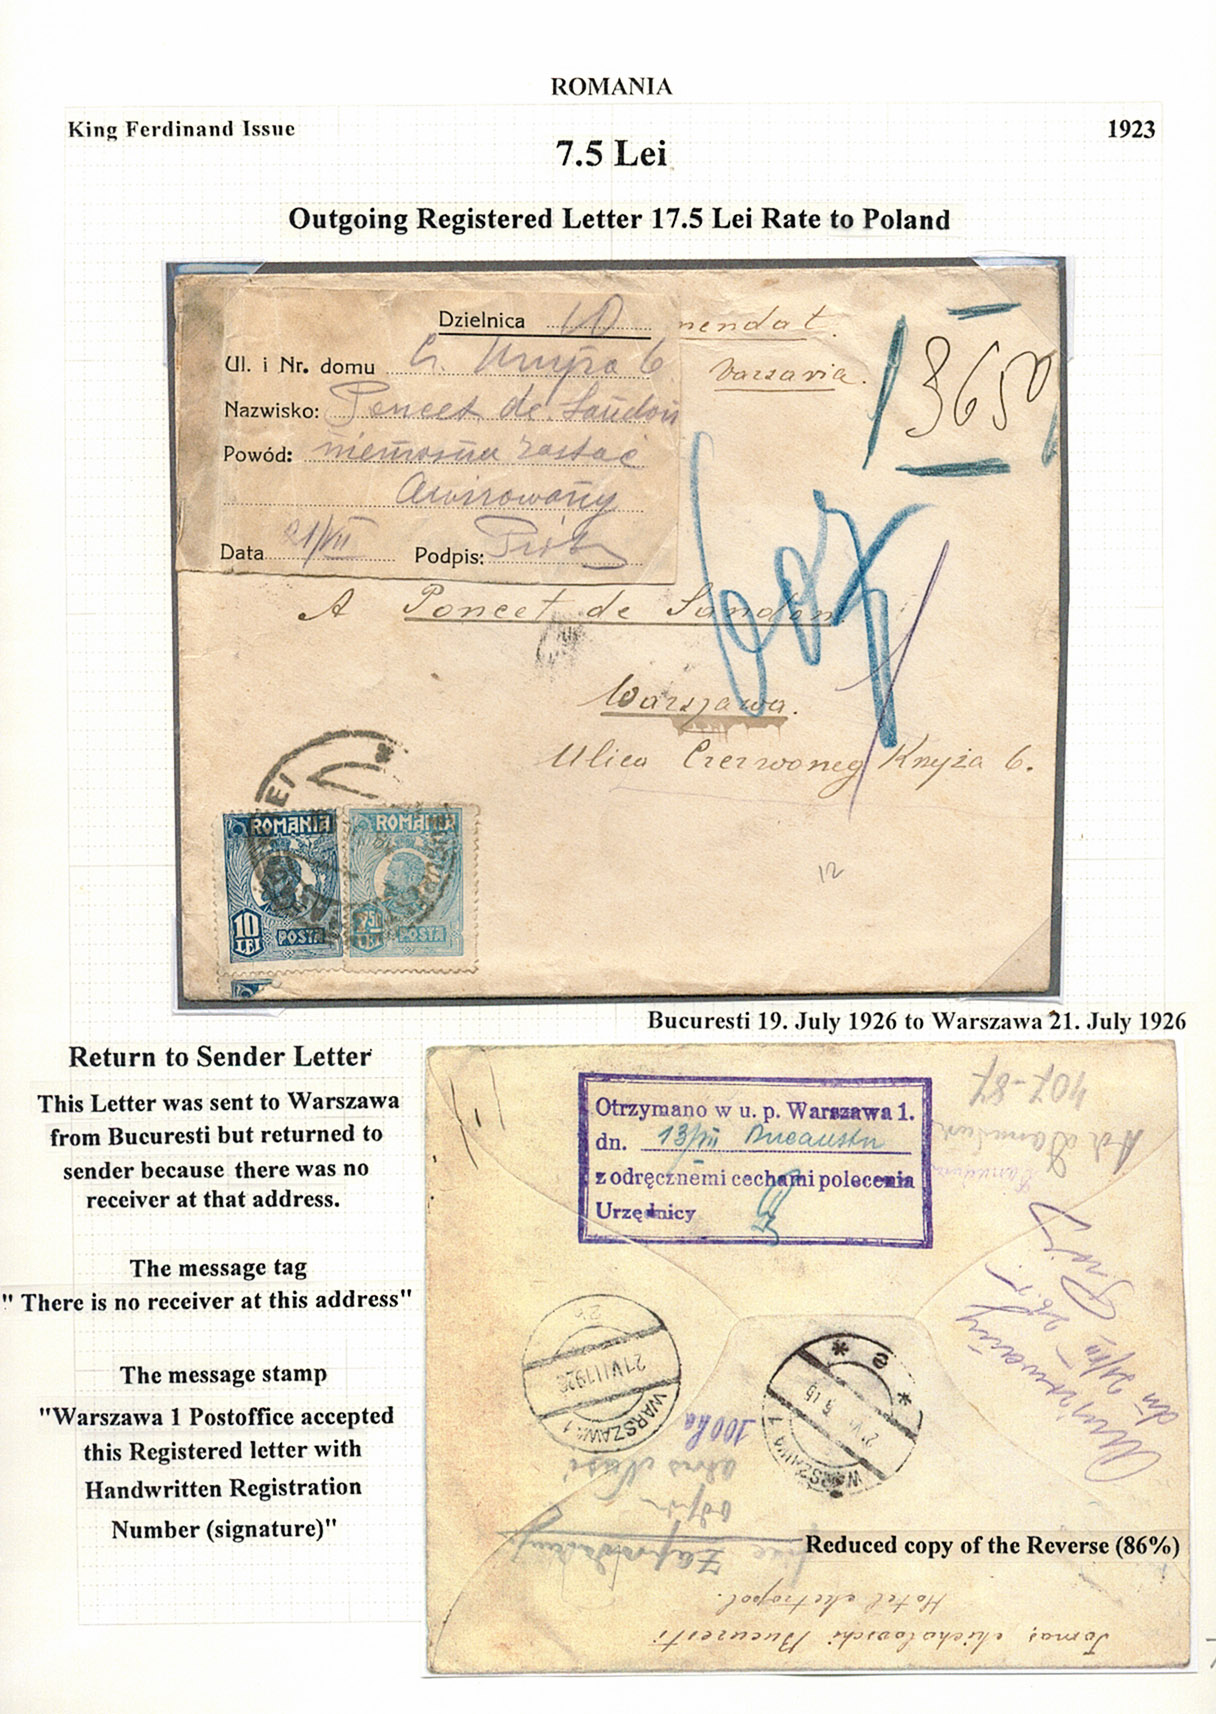 ROMANIA
King Ferdinand Issue
1923
7.5 Lei
Outgoing Registered Letter 17.5 Lei Rate to Poland
Dzielnica 10
Ul. i Nr. domu 6
Nazwisko: Poncet de Sandon
Powód: zastać
Awizowany
Data 21/VII Podpis:
mendat.
Varsavia.
3650
607
A Poncet de Sandon
Warszawa.
Ulica Czerwoneg Knyża 6.
12
ROMANIA
10 LEI
POSTA
ROMANIA
7 50 LEI
POSTA
Bucuresti 19. July 1926 to Warszawa 21. July 1926
Return to Sender Letter
This Letter was sent to Warszawa
from Bucuresti but returned to
sender because there was no
receiver at that address.
The message tag
" There is no receiver at this address"
The message stamp
"Warszawa 1 Postoffice accepted
this Registered letter with
Handwritten Registration
Number (signature)"
Otrzymano w u. p. Warszawa 1.
dn. 13/VII
z odręcznemi cechami polecenia
Urzędnicy
407-87
WARSZAWA 1
21 VII 1926
2b
WARSZAWA 1
* e *
100ka
Awizowany
dn 21/VII
Reduced copy of the Reverse (86%)
Hotel Metropol.
Tomas Bucuresti